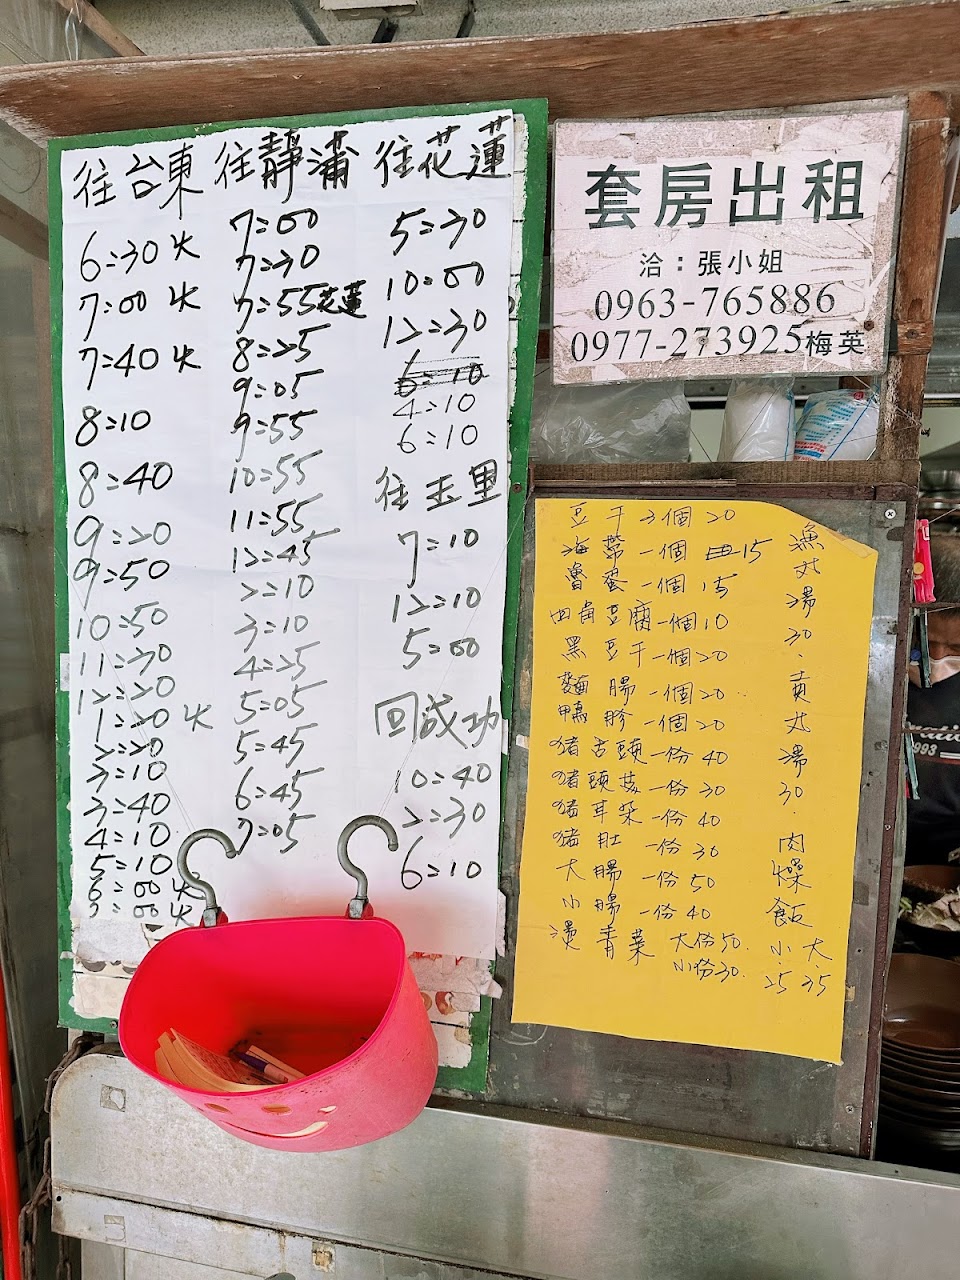 往台東
6:30 火
7:00 火
7:40 火
8:10
8:40
9:20
9:50
10:50
11:30
12:20
1:20 火
2:20
3:10
3:40
4:10
5:10
6:00 火
7:00 火
往靜浦
7:00
7:30
7:55花蓮
8:25
9:05
9:55
10:55
11:55
12:45
2:10
3:10
4:25
5:05
5:45
6:45
7:05
往花蓮
5:30
10:00
12:30
4:10
6:10
往玉里
7:10
12:10
5:00
回成功
10:40
2:30
6:10
套房出租
洽：張小姐
0963-765886
0977-273925梅英
豆干3個20
海帶一個15
魯蛋一個15
四角豆腐一個10
黑豆干一個20
麵腸一個20
鴨胗一個20
豬舌頭一份40
豬頭菜一份30
豬耳朵一份40
豬肚一份30
大腸一份50
小腸一份40
燙青菜 大份50.
小份30.
漁丸湯30.
貢丸湯30.
肉燥飯
小.25
大.35
993